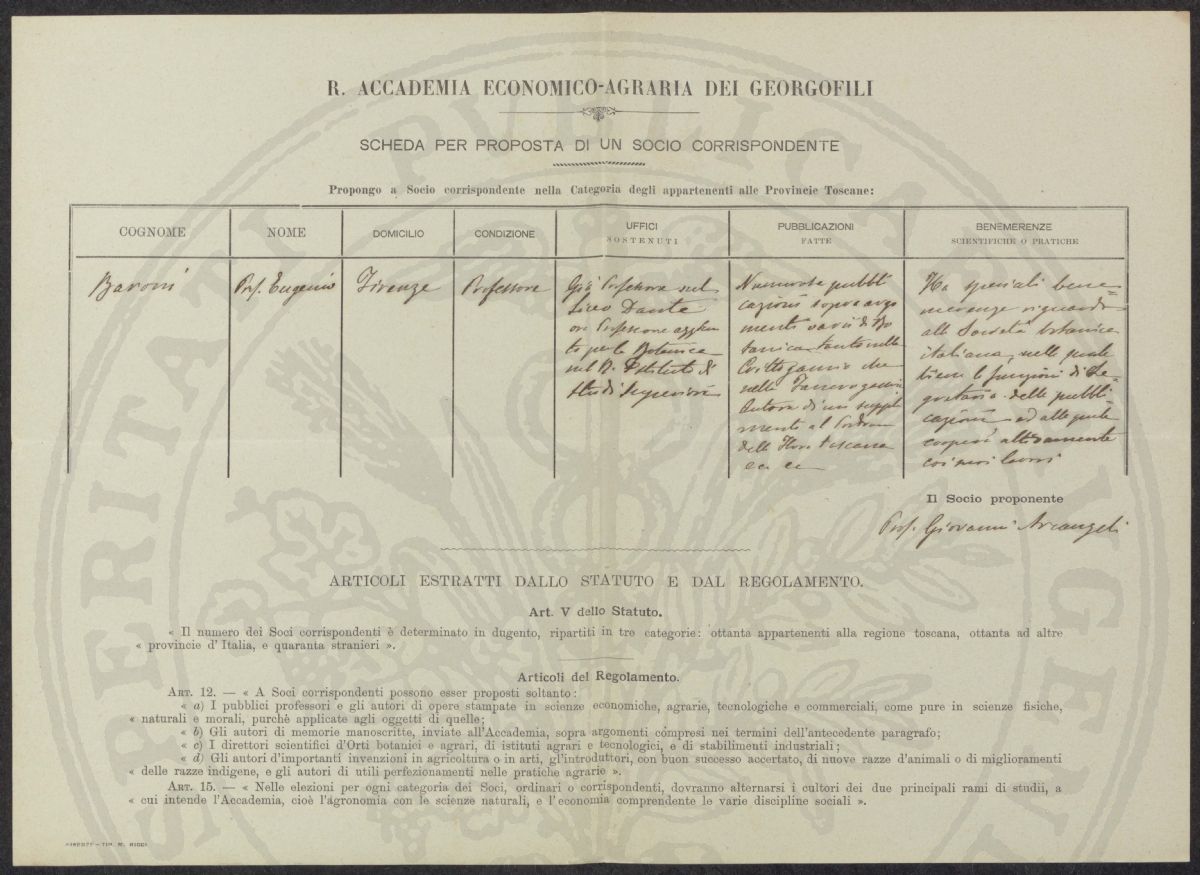 PROSPERITATI PUBLICAE AUGENDAE
R. ACCADEMIA ECONOMICO-AGRARIA DEI GEORGOFILI
SCHEDA PER PROPOSTA DI UN SOCIO CORRISPONDENTE
Propongo a Socio corrispondente nella Categoria degli appartenenti alle Provincie Toscane:
COGNOME
NOME
DOMICILIO
CONDIZIONE
UFFICI
SOSTENUTI
PUBBLICAZIONI
FATTE
BENEMERENZE
SCIENTIFICHE O PRATICHE
Baroni
Prof. Eugenio
Firenze
Professore
Già Professore nel
Liceo Dante
ora Professore aggiun
to per la Botanica
nel R. Istituto di
studi superiori
Numerose pubbli
cazioni sopra argo
menti varii di Bo
tanica tanto nella
Crittogamia che
nella Fanerogamia
Autore di un supple
mento al Prodromo
della Flora toscana
ec. ec
Ha speciali bene-
merenze riguardo
alla Società botanica
italiana, nella quale
tiene le funzioni di Se-
gretario delle pubbli
cazioni ed alla quale
cooperò attivamente
coi suoi lavori
Il Socio proponente
Prof. Giovanni Arcangeli
ARTICOLI ESTRATTI DALLO STATUTO E DAL REGOLAMENTO.
Art. V dello Statuto.
« Il numero dei Soci corrispondenti è determinato in dugento, ripartiti in tre categorie: ottanta appartenenti alla regione toscana, ottanta ad altre
« provincie d'Italia, e quaranta stranieri ».
Articoli del Regolamento.
ART. 12. — « A Soci corrispondenti possono esser proposti soltanto:
« a) I pubblici professori e gli autori di opere stampate in scienze economiche, agrarie, tecnologiche e commerciali, come pure in scienze fisiche,
« naturali e morali, purchè applicate agli oggetti di quelle;
« b) Gli autori di memorie manoscritte, inviate all'Accademia, sopra argomenti compresi nei termini dell'antecedente paragrafo;
« c) I direttori scientifici d'Orti botanici e agrari, di istituti agrari e tecnologici, e di stabilimenti industriali;
« d) Gli autori d'importanti invenzioni in agricoltura o in arti, gl'introduttori, con buon successo accertato, di nuove razze d'animali o di miglioramenti
« delle razze indigene, e gli autori di utili perfezionamenti nelle pratiche agrarie ».
ART. 15. — « Nelle elezioni per ogni categoria dei Soci, ordinari o corrispondenti, dovranno alternarsi i cultori dei due principali rami di studii, a
« cui intende l'Accademia, cioè l'agronomia con le scienze naturali, e l'economia comprendente le varie discipline sociali ».
FIRENZE – TIP. M. RICCI